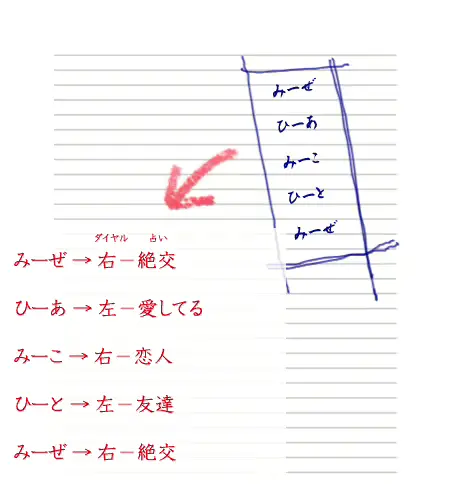 みーぜ
ひーあ
みーこ
ひーと
みーぜ
ダイヤル 占い
みーぜ→右－絶交
ひーあ→左－愛してる
みーこ→右－恋人
ひーと→左－友達
みーぜ→右－絶交